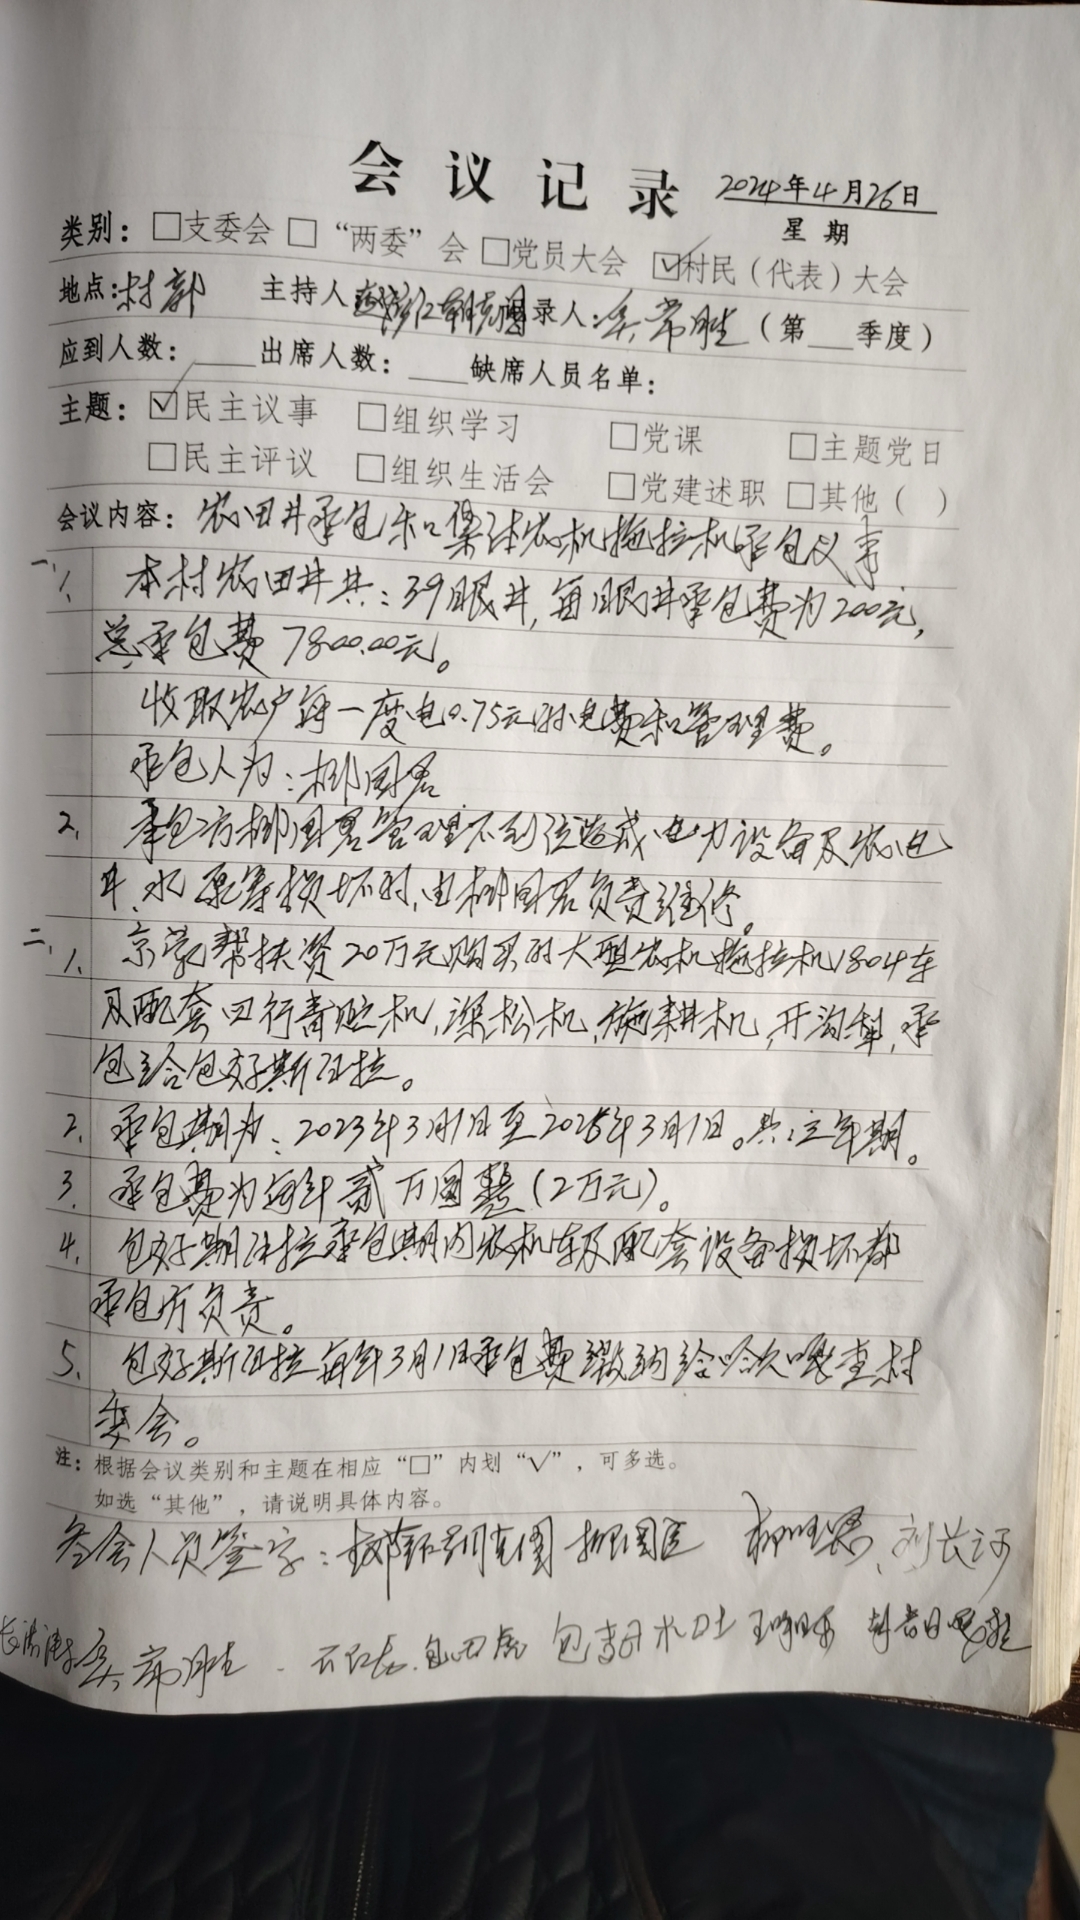 会议记录 2024年4月26日
类别：□支委会 □“两委”会 □党员大会 ☑村民（代表）大会 星期
地点：村部 主持人 记录人：吴常胜（第___季度）
应到人数：____出席人数：____缺席人员名单：
主题：☑民主议事 □组织学习 □党课 □主题党日
□民主评议 □组织生活会 □党建述职 □其他（ ）
会议内容：农田井承包和集体农机拖拉机承包议事
一、1、本村农田井共：39眼井，每眼井承包费为200元，
总承包费7800.00元。
收取农户每一度电0.75元的电费和管理费。
承包人为：柳国君
2、承包方柳国君管理不到位造成电力设备及农电
井、水泵等损坏时，由柳国君负责维修。
二、1、京蒙帮扶资20万元购买的大型农机拖拉机1804车
及配套四行青贮机，深松机，施耕机，开沟犁，承
包给包好斯巴拉。
2、承包期为：2023年3月1日至2025年3月1日。共：年期。
3、承包费为每年贰万圆整（2万元）。
4、包好斯巴拉承包期内农机车及配套设备损坏都
承包方负责。
5、包好斯巴拉每年3月1日承包费缴纳给哈久嘎查村
委会。
注：根据会议类别和主题在相应“□”内划“√”，可多选。
如选“其他”，请说明具体内容。
参会人员签字： 刘长河
吴常胜